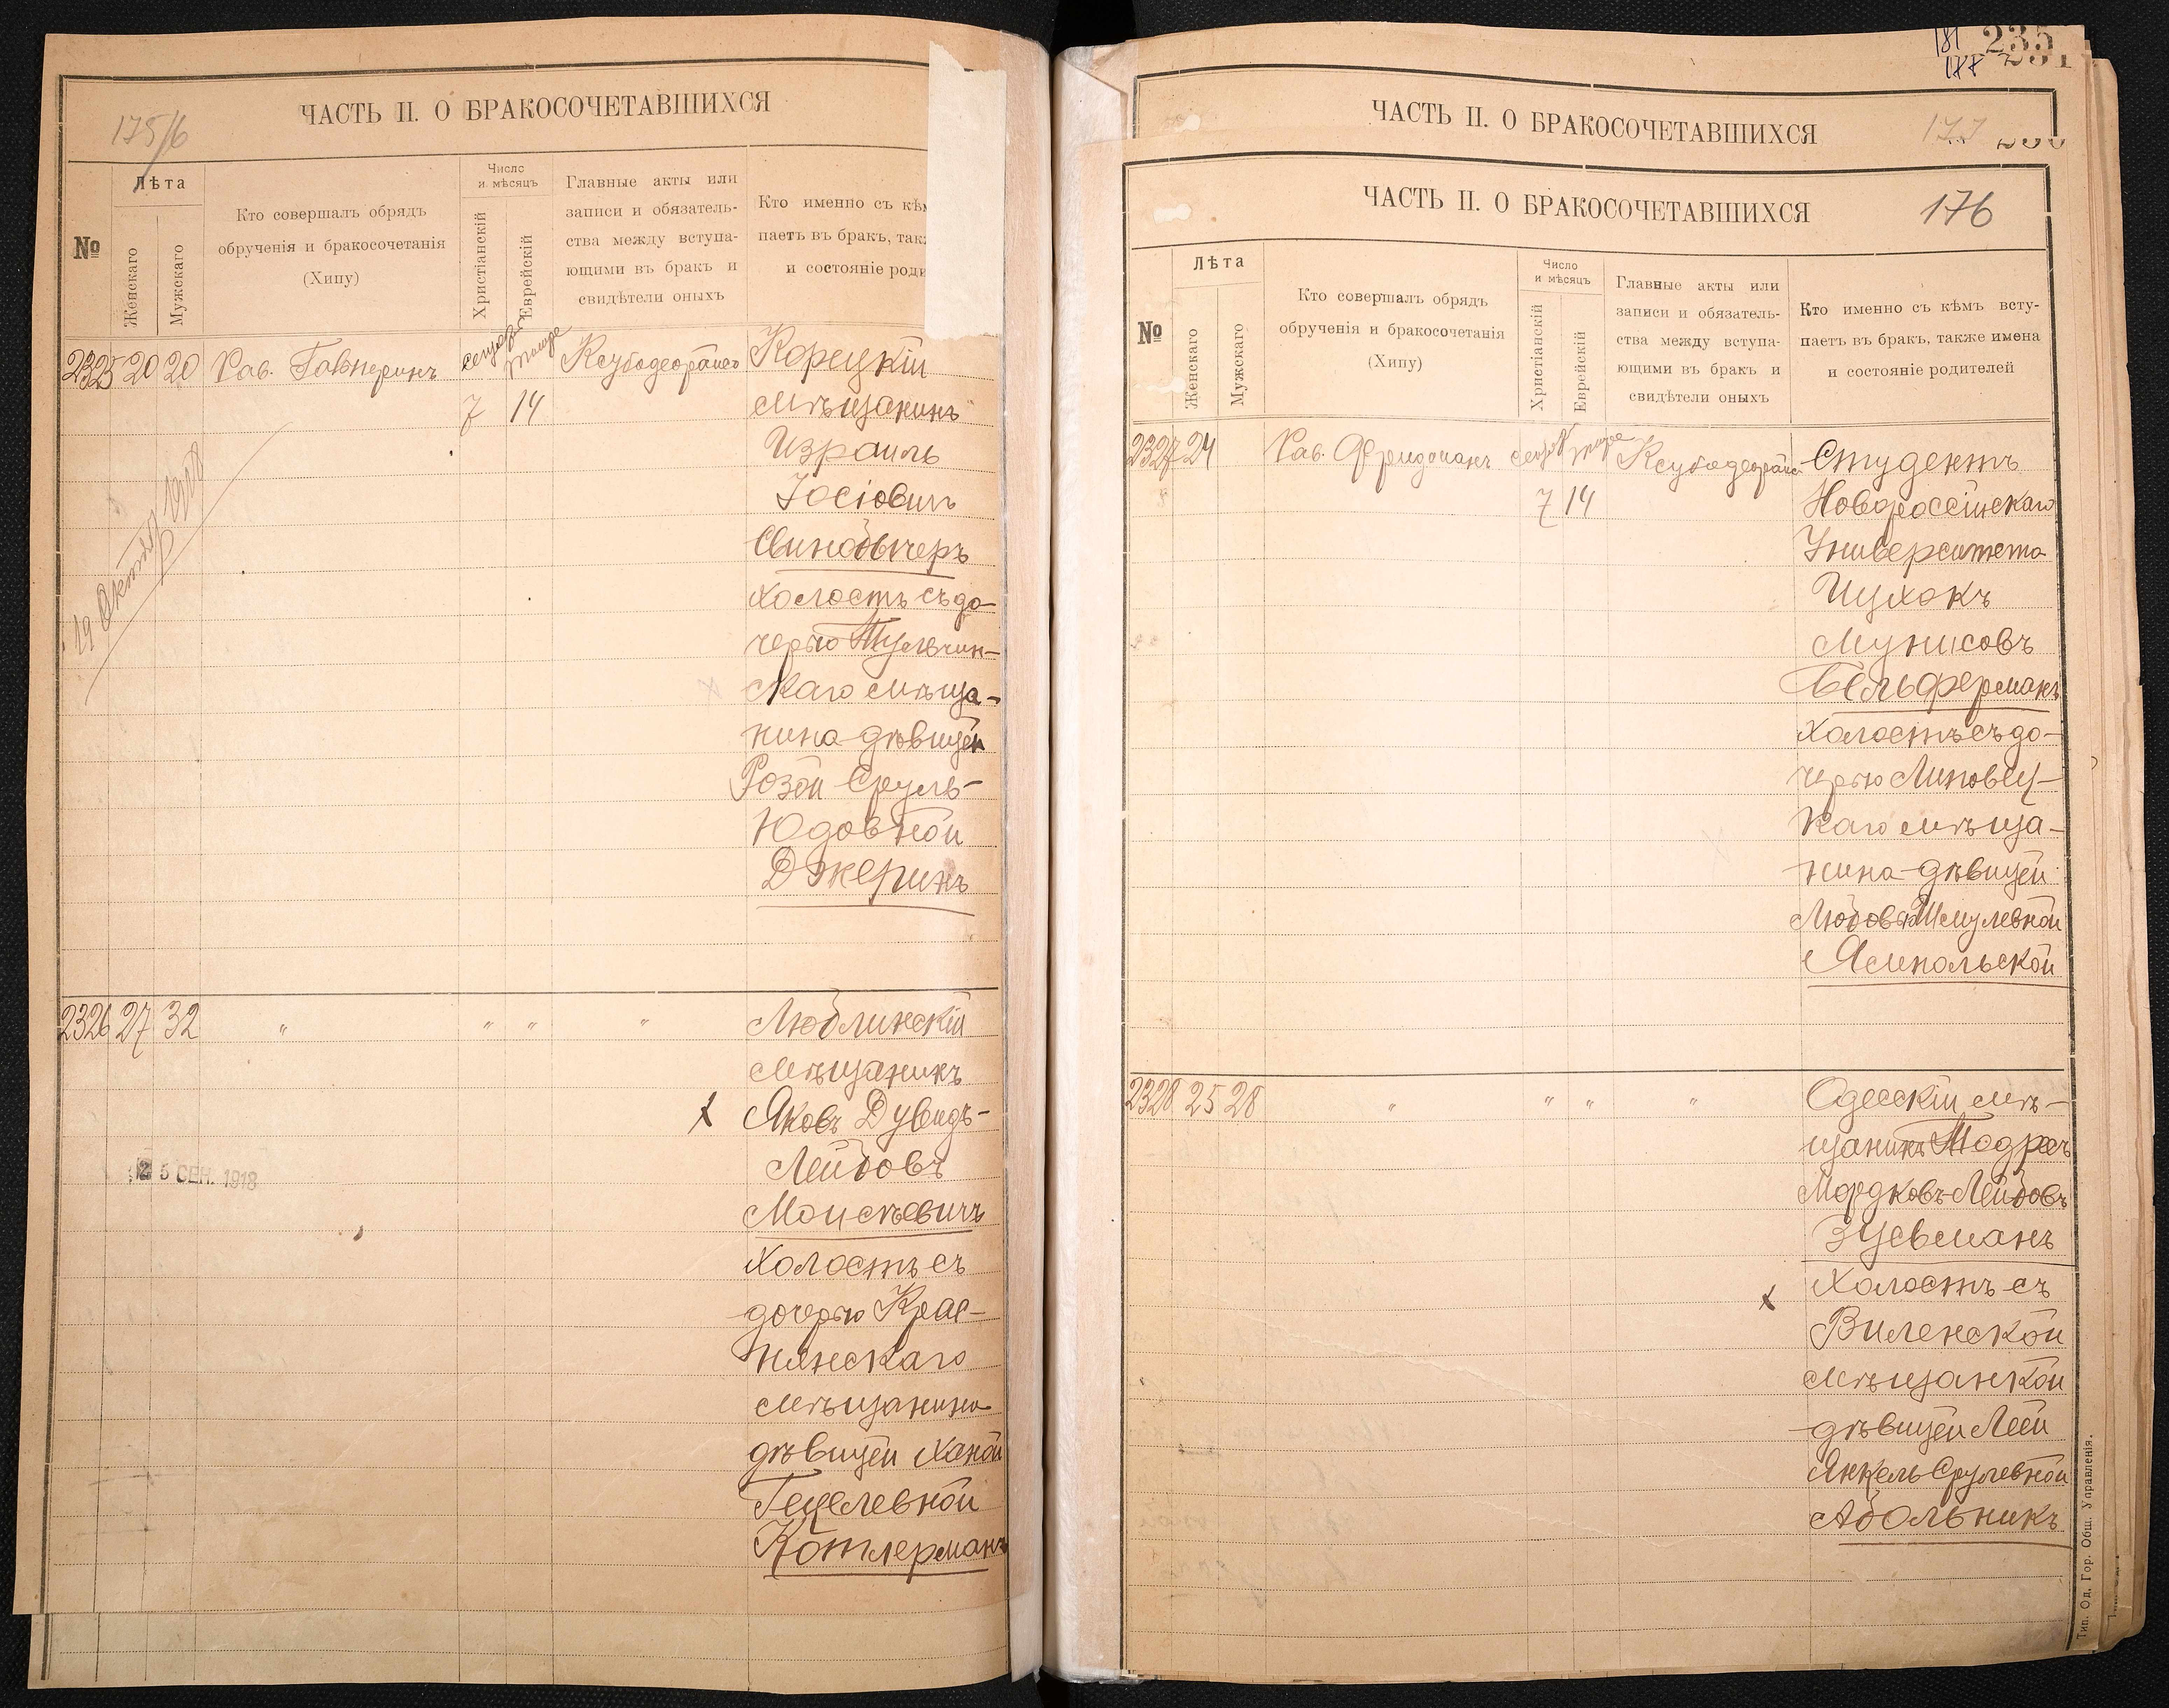 ЧАСТЬ II. О БРАКОСОЧЕТАВШИХСЯ
175/6
№
Лѣта
Женскаго
Мужскаго
Кто совершалъ обрядъ
обрученія и бракосочетанія
(Хипу)
Число
и мѣсяцъ
Христіанскій
Еврейскій
Главные акты или
записи и обязатель-
ства между вступа-
ющими въ бракъ и
свидѣтели оныхъ
Кто именно съ кѣм
паетъ въ бракъ, так
и состояніе роди
2325 20 20 Рав. Гальперинъ Корецкій
7 14 мѣщанинъ
Израиль
Іосіовичъ
Винокъчеръ
холостъ съ до-
черью Тульчин-
скаго мѣща-
нина дѣвицей
Розой Сруль-
Юдовной
Джеринъ
19 Октября 1918
2326 27 32 " " " " Люблинскій
мѣщанинъ
х Яковъ Дувидъ-
Лейбовъ
25 СЕН. 1918
Моисѣевичъ
холостъ съ
дочерью Крас-
нянскаго
мѣщанина
дѣвицей Ханой
Гецелевной
Котлерманъ
181 235
177
ЧАСТЬ II. О БРАКОСОЧЕТАВШИХСЯ
177
ЧАСТЬ II. О БРАКОСОЧЕТАВШИХСЯ
176
№
Лѣта
Женскаго
Мужскаго
Кто совершалъ обрядъ
обрученія и бракосочетанія
(Хипу)
Число
и мѣсяцъ
Христіанскій
Еврейскій
Главные акты или
записи и обязатель-
ства между вступа-
ющими въ бракъ и
свидѣтели оныхъ
Кто именно съ кѣмъ всту-
паетъ въ бракъ, также имена
и состояніе родителей
2327 24 Рав. Фридманъ Студентъ
7 14 Новороссійскаго
Университета
Ицхокъ
Мунисовъ
Бельферманъ
холостъ съ до-
черью Липовец-
каго мѣща-
нина дѣвицей
Шмулевной
Ямпольской
2328 25 28 " " " " Одесскій мѣ-
щанинъ Тодресъ
Мордковъ-Лейбовъ
Зусьманъ
х холостъ съ
Виленской
мѣщанкой
дѣвицей Леей
Янкель Срулевной
Абольникъ
Тип. Од. Гор. Общ. Управленія.